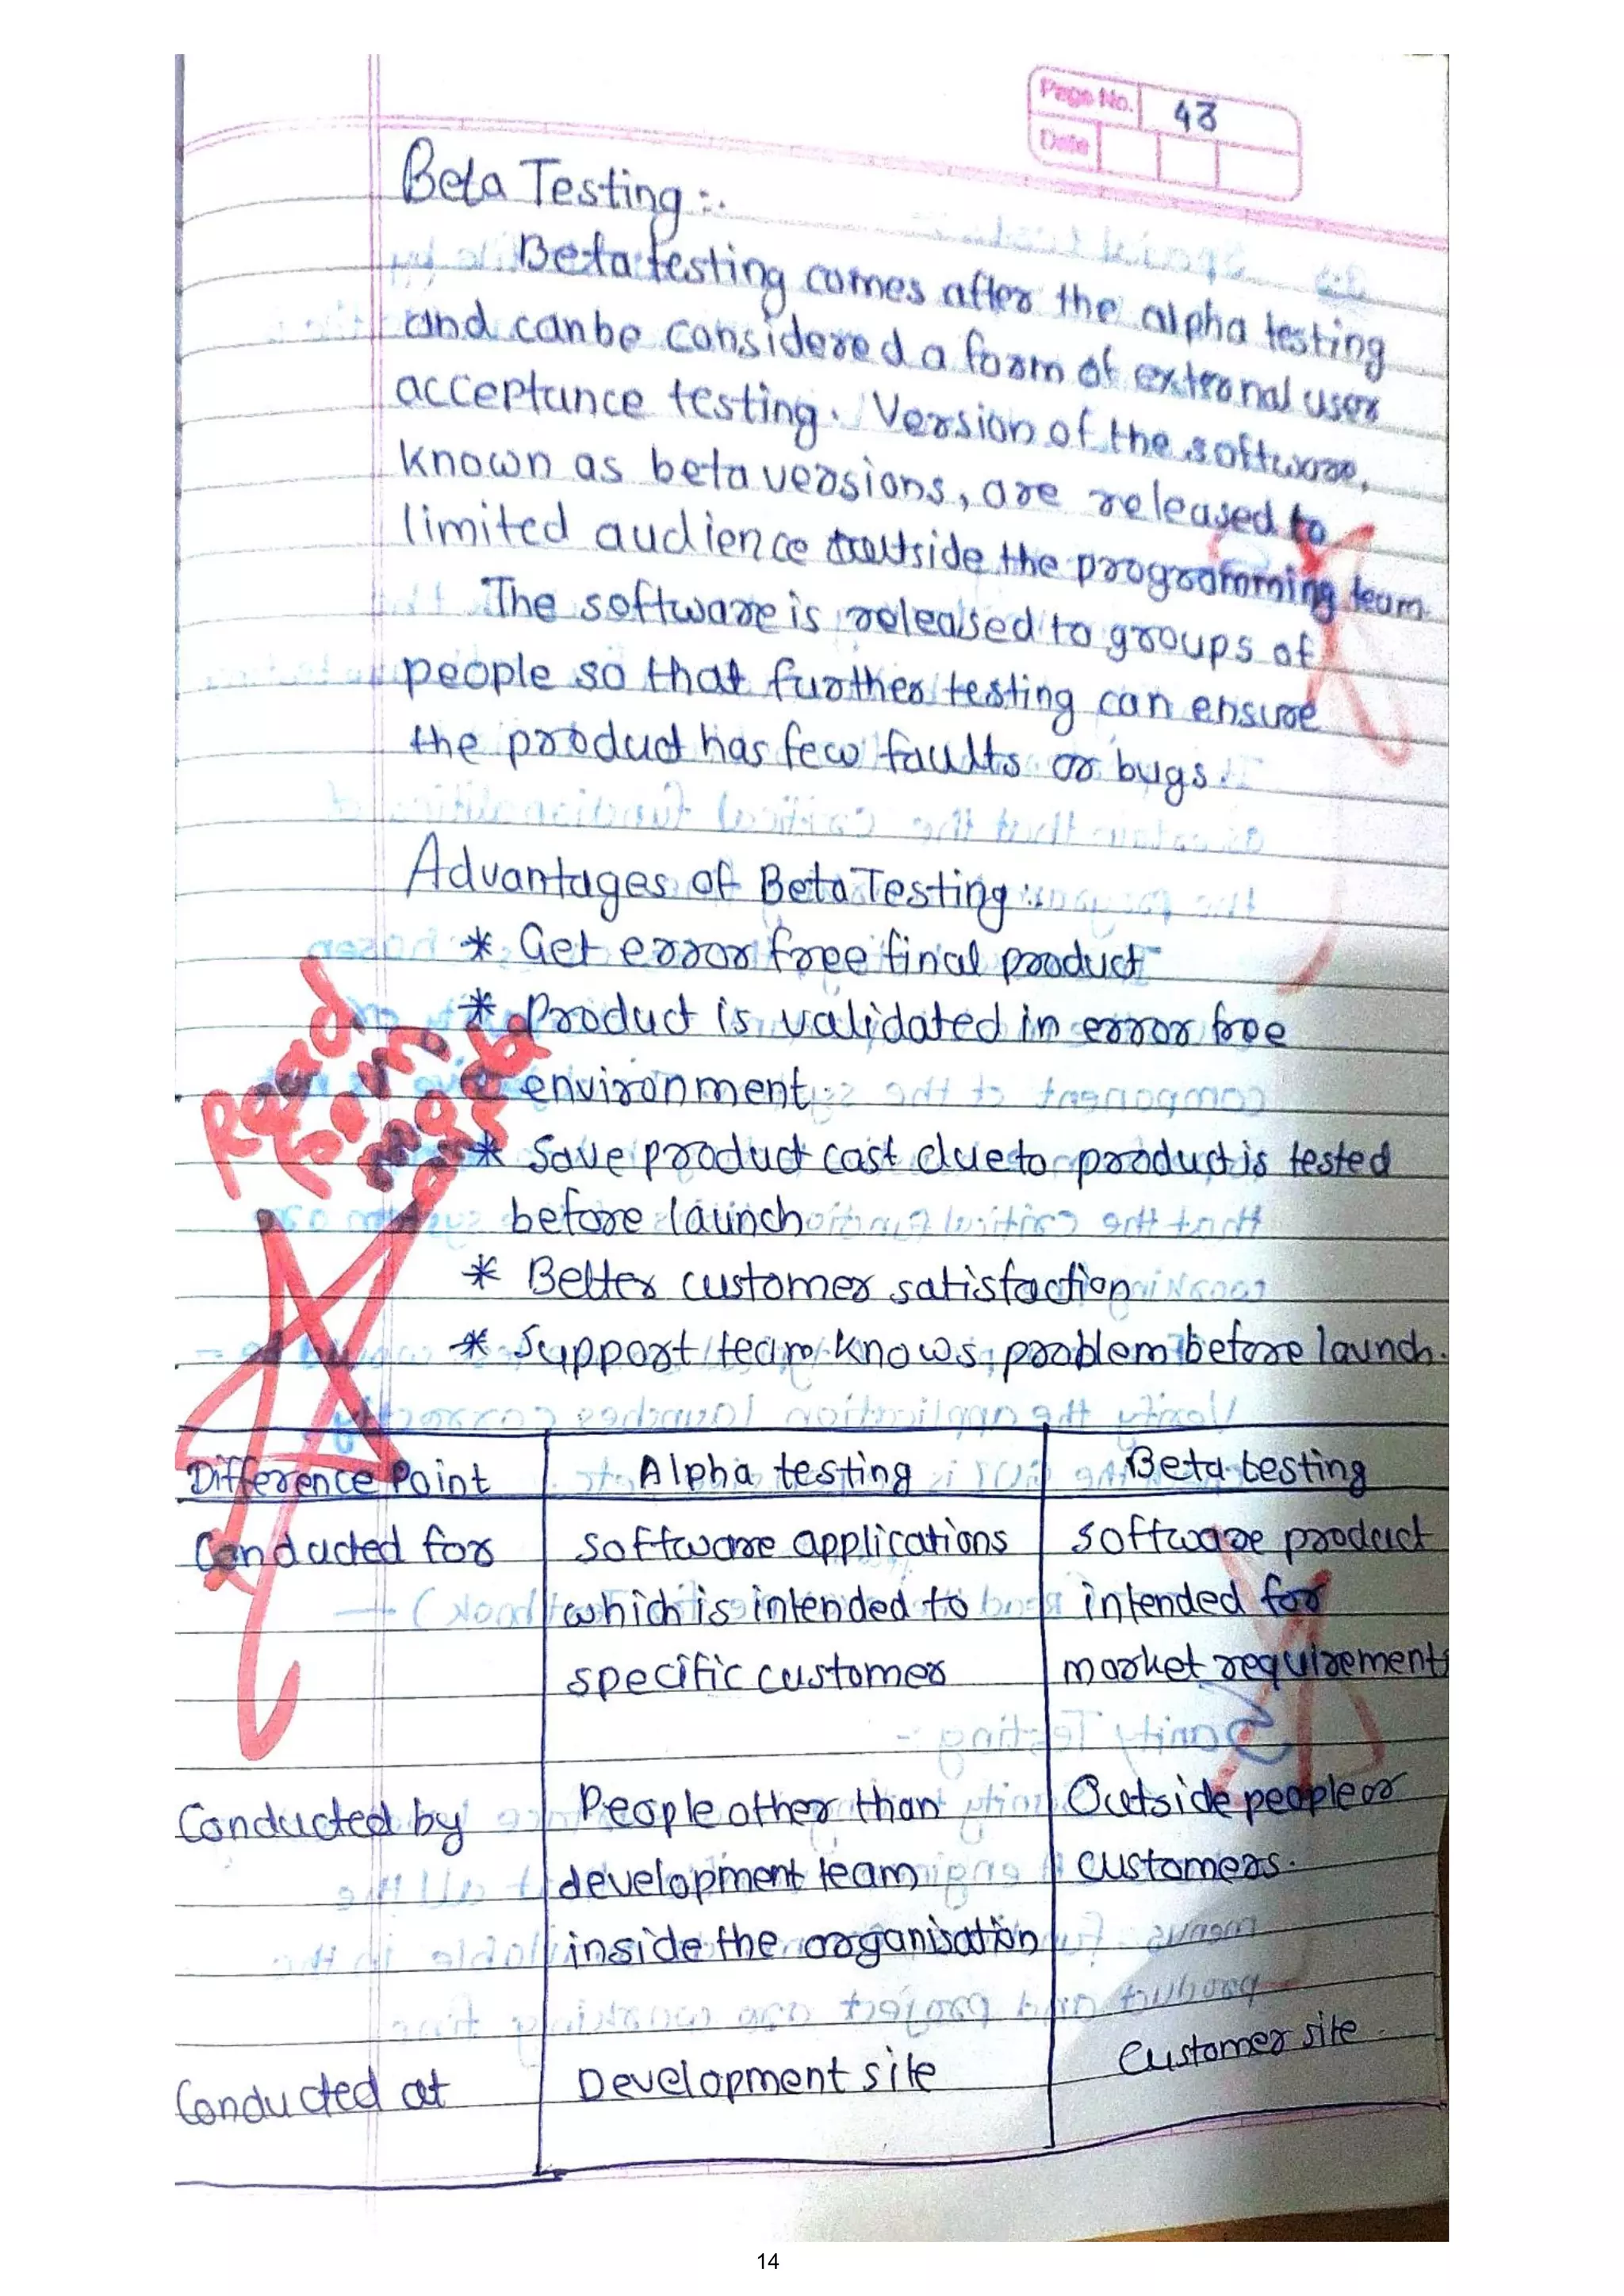 Page No. 43
Date
Beta Testing :-
Beta testing comes after the alpha testing
and can be considered a form of external user
acceptance testing. Version of the software,
known as beta versions, are released to
limited audience outside the programming team.
The software is released to groups of
people so that further testing can ensure
the product has few faults or bugs.
Advantages of Beta Testing :-
* Get error free final product
* Product is validated in error free
environment.
* Save product cost due to product is tested
before launch
* Better customer satisfaction
* Support team knows problem before launch.
Read
from
Difference Point | Alpha testing | Beta testing
Conducted for | software applications | software product
which is intended to | intended for
specific customer | market requirements
Conducted by | People other than | Outside people or
development team | customers.
inside the organisation
Conducted at | Development site | Customer site
14